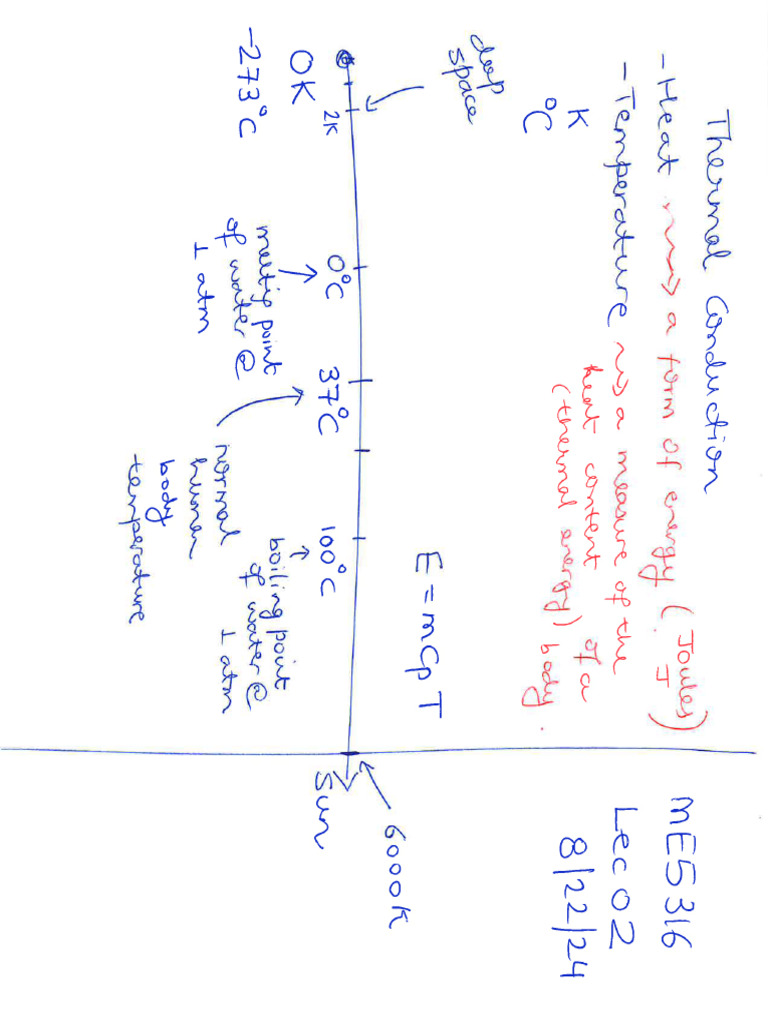 Thermal Conduction
- Heat ⇝ a form of energy (Joules)
J
- Temperature ⇝ a measure of the
heat content of a
(thermal energy) body.
K
°C
ME5316
Lec 02
8/22/24
E = mCpT
deep
space
6000K
2K
0K
-273°C
0°C
meltig point
of water @
1 atm
37°C
normal
human
body
temperature
100°C
boiling point
of water @
1 atm
Sun